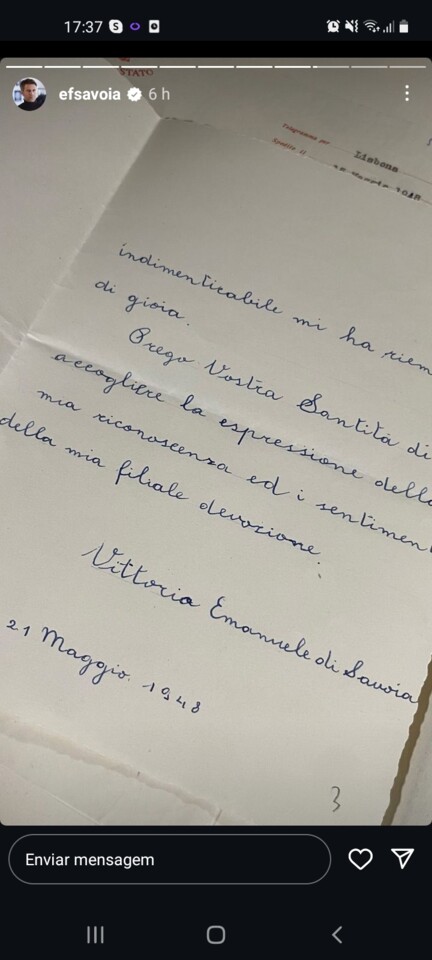 17:37
STATO
efsavoia 6 h
Telegramma per Lisbona
Spedito il Maggio 1948
indimenticabile mi ha riem
di gioia.
Prego Vostra Santità di
accogliere la espressione della
mia riconoscenza ed i sentimen
della mia filiale devozione.
Vittorio Emanuele di Savoia
21 Maggio. 1948
3
Enviar mensagem